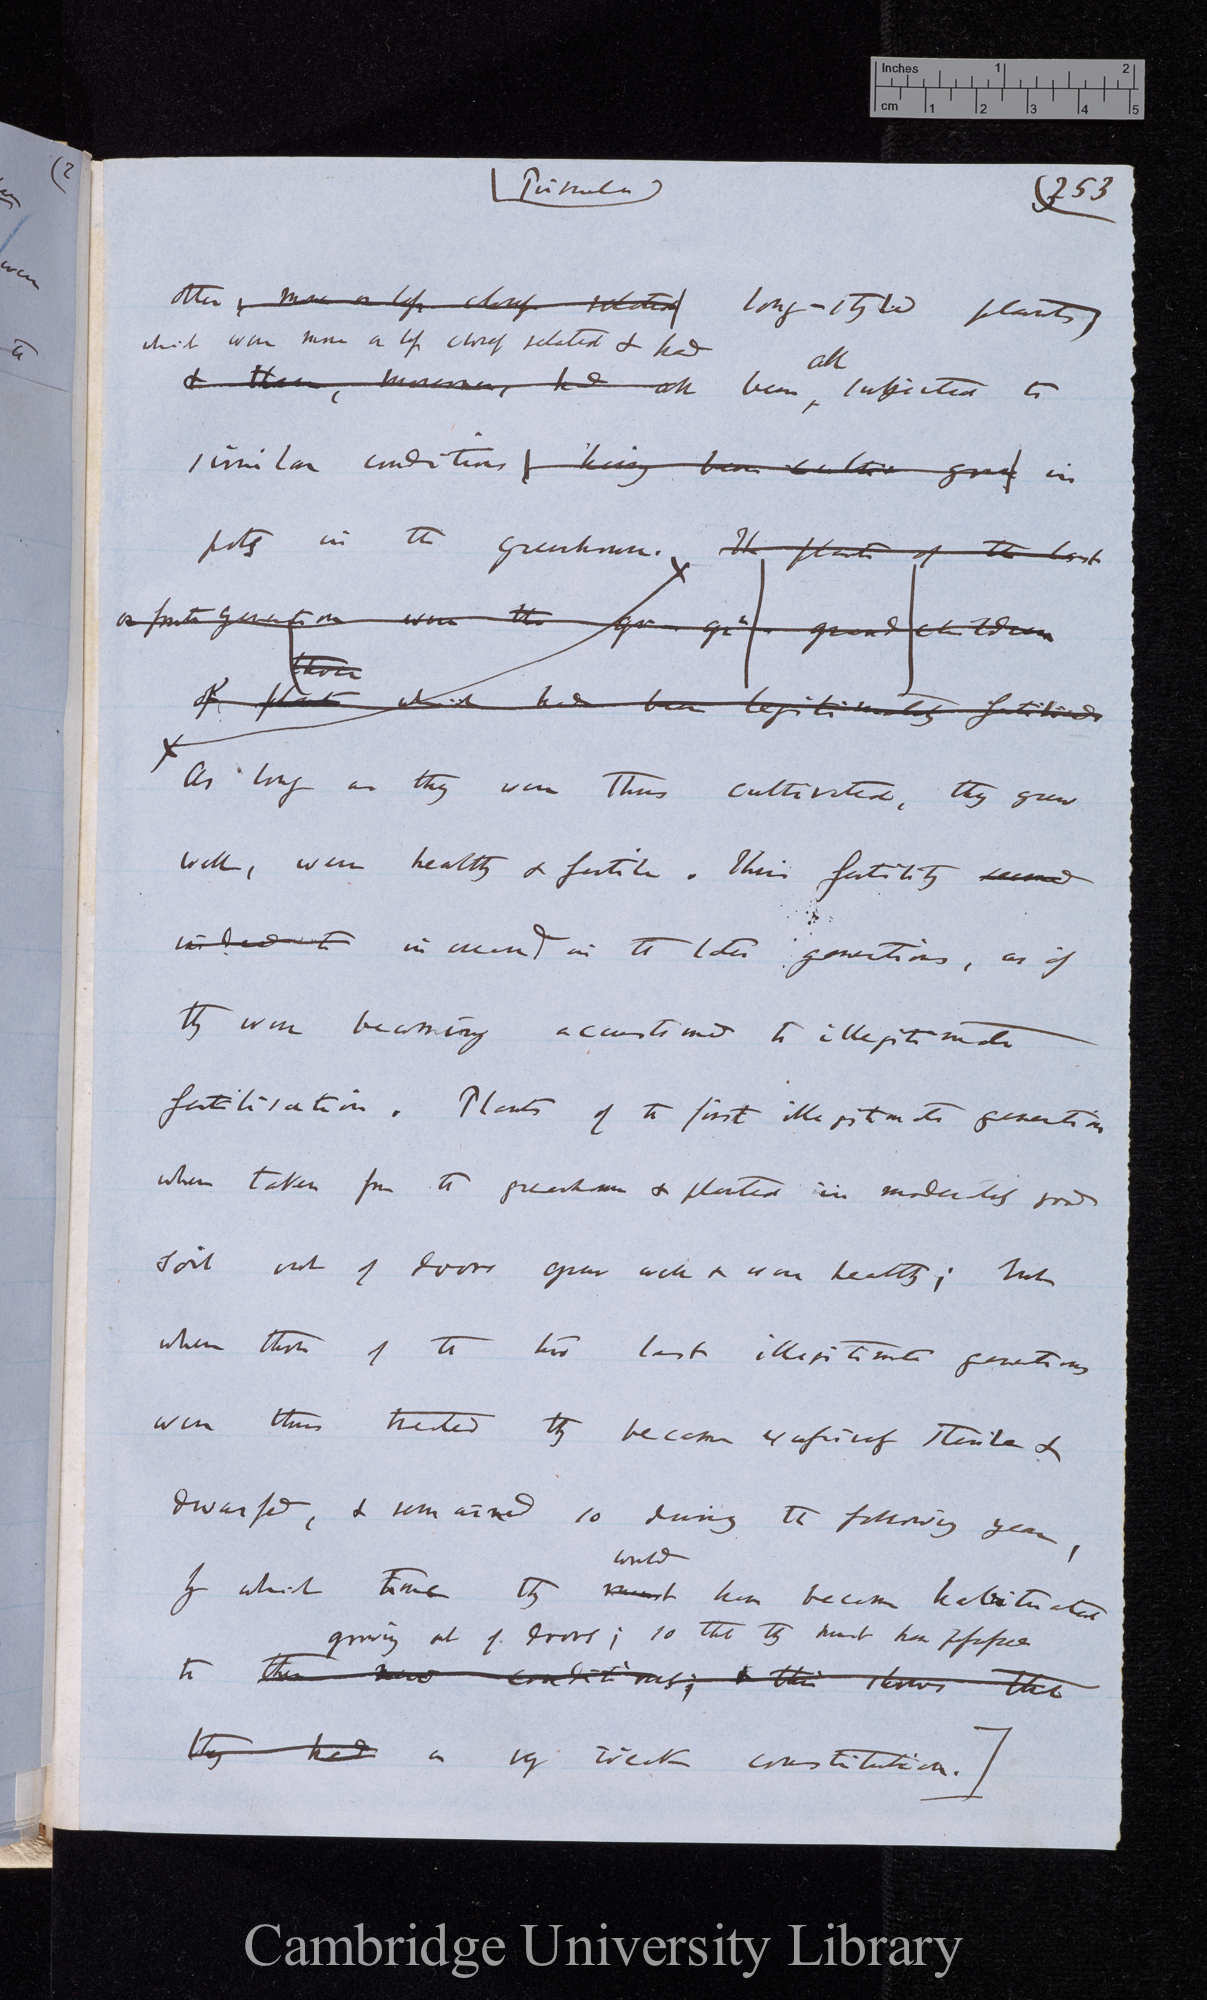 Inches 1 2
cm 1 2 3 4 5
(2
(Primula)
(253
other, more or less closely related long-styled plants,
which were more or less closely related & had
all
& these, moreover, had all been, subjected to
similar conditions being been grown in
pots in the greenhouse. The plants of the last
generation were the grand children
those
of plants which had been legitimately fertilised
As long as they were thus cultivated, they grew
well, were healthy & fertile. Their fertility seemed
indeed to increased in the later generations, as if
they were becoming accustomed to illegitimate
fertilisation. Plants of the first illegitimate generation
when taken from the greenhouse & planted in moderately good
soil out of doors grew well & were healthy; but
when those of the two last illegitimate generations
were thus treated they became excessively sterile &
dwarfed, & remained so during the following year,
would
by which time they must have become habituated
growing out of doors; so that they must have possessed
to these new conditions; & this shows that
they had a very weak constitution.]
Cambridge University Library